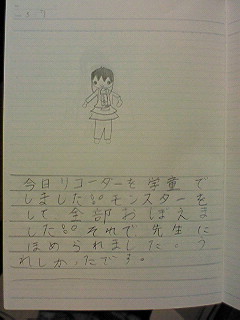 今日リコーダーを学童で
しました。モンスターを
して全部おぼえま
した。それで先生に
ほめられました。う
れしかったです。